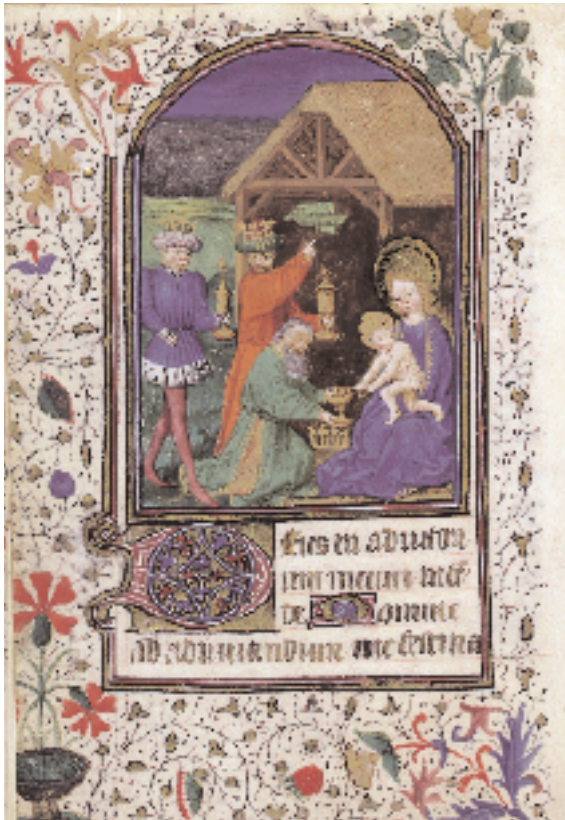 Deus in adiutori
um meum inten
de Domine
ad adiuvandum me festina